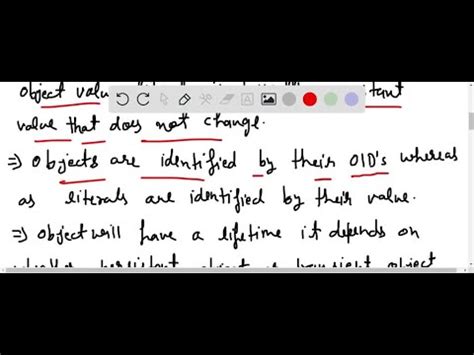 object value
tant
value that does not change.
⇒ Objects are identified by their OID's whereas
as literals are identified by their value.
⇒ Object will have a lifetime it depends on
object